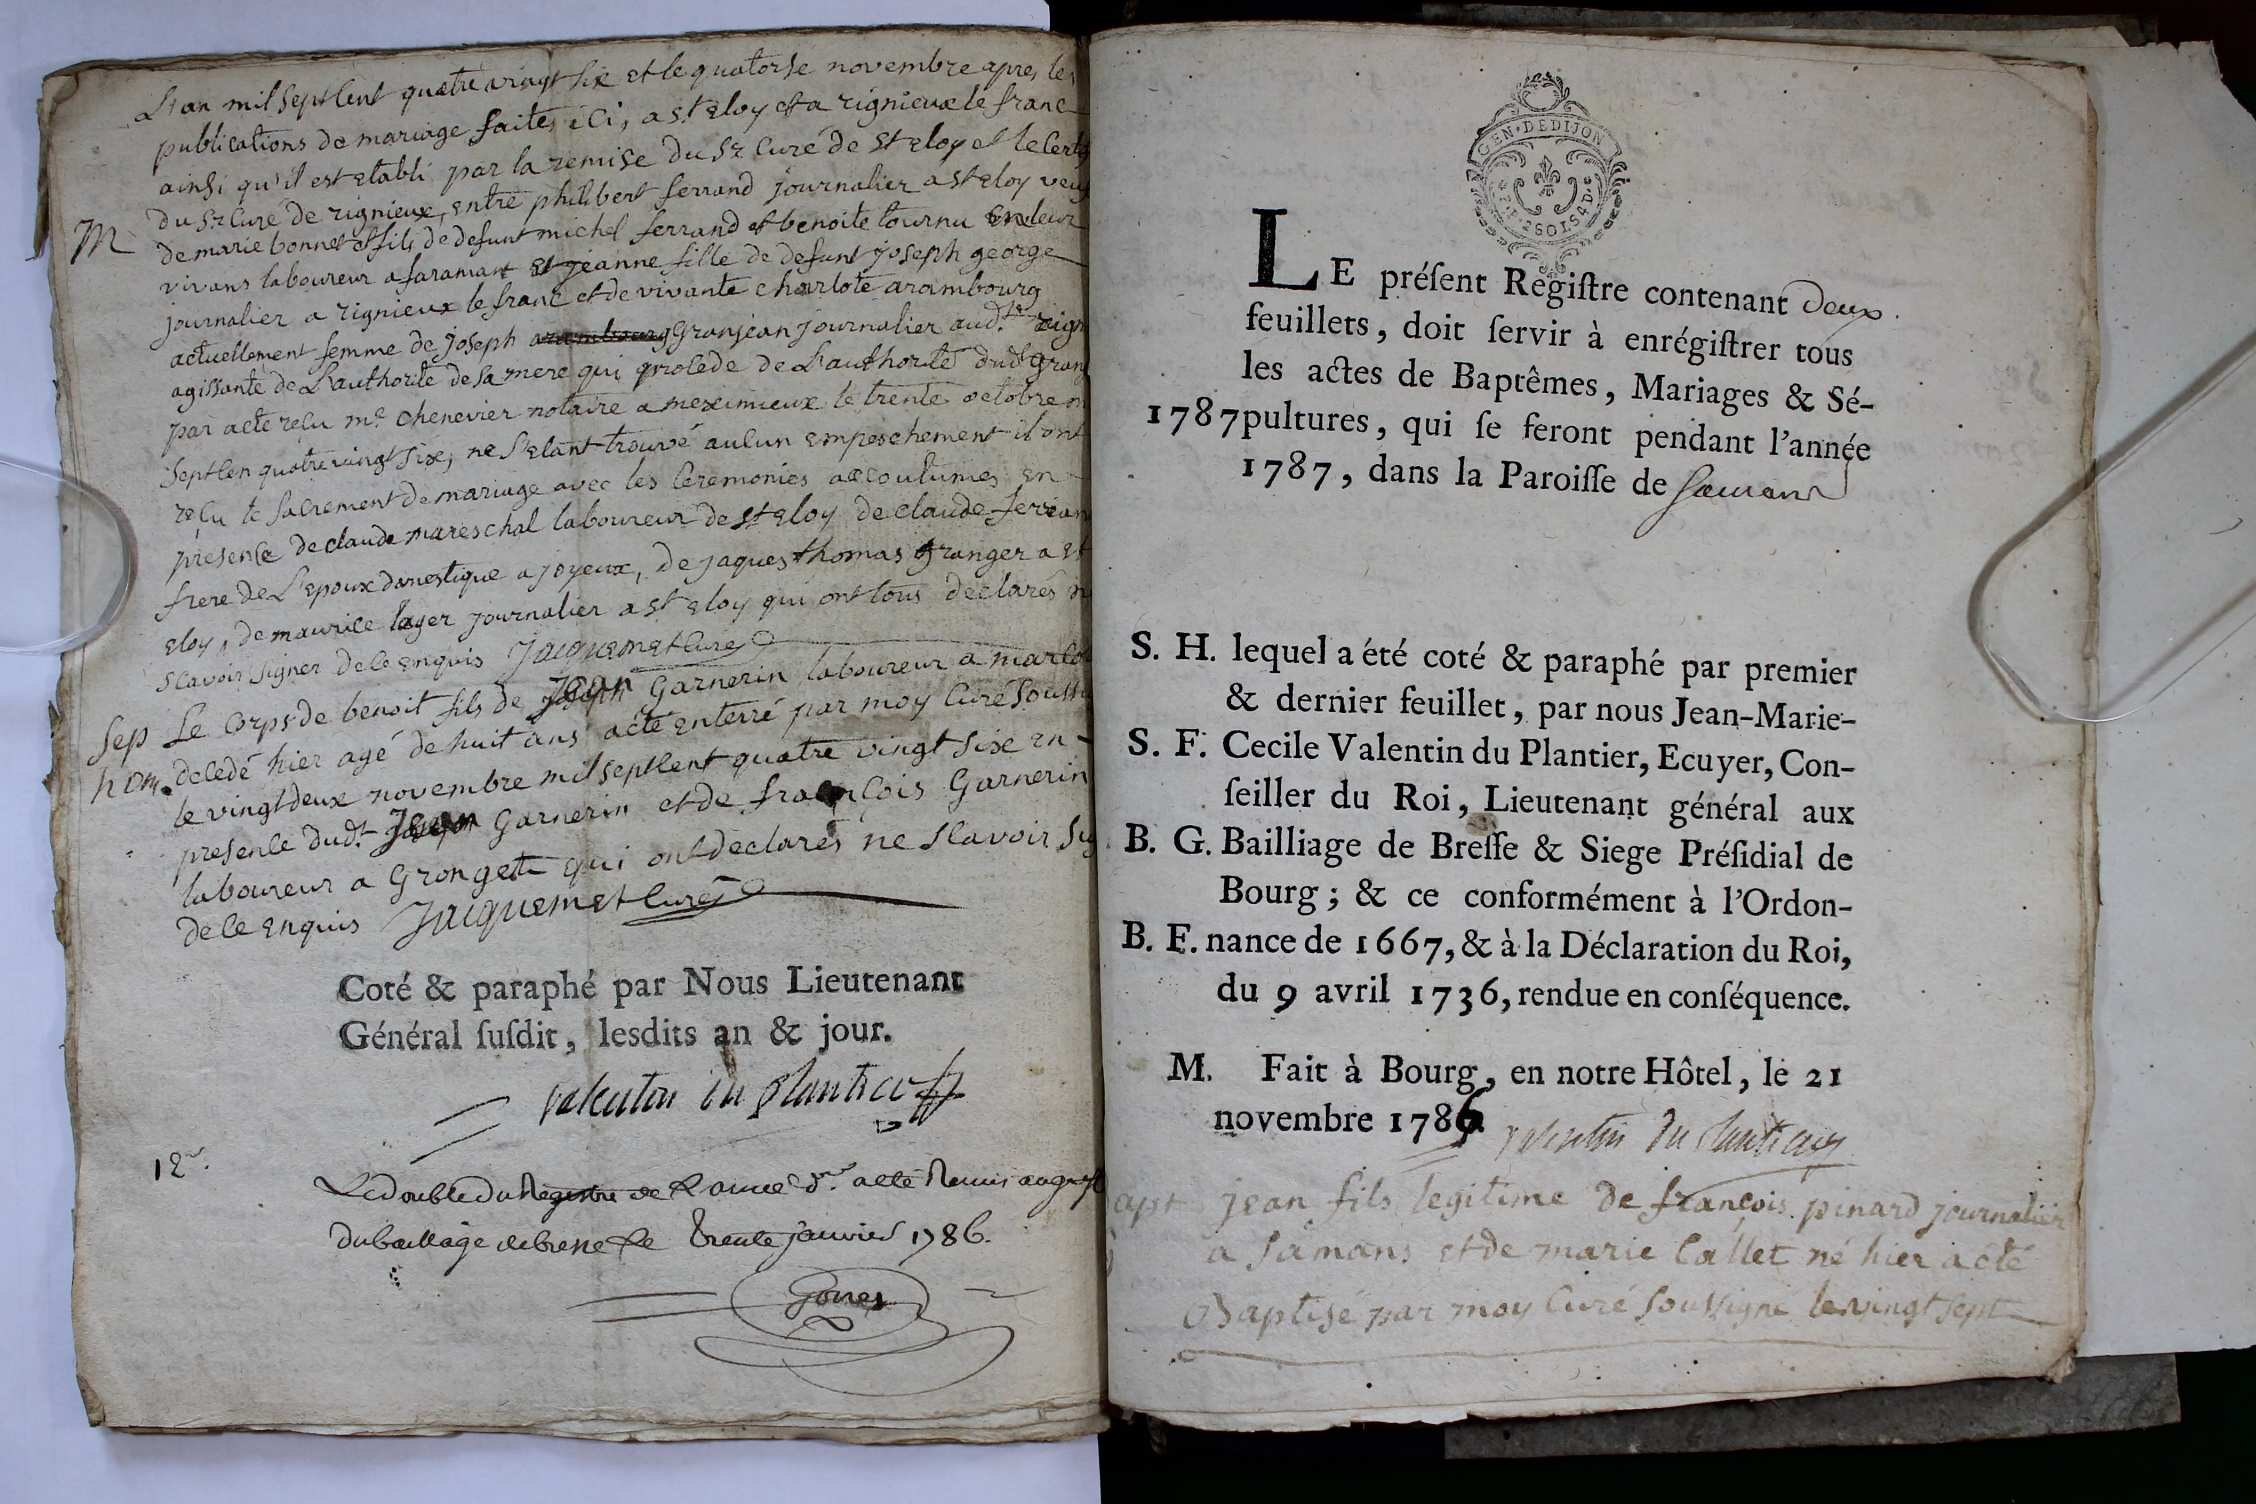 L'an mil sept cent quatre vingt six et le quatorse novembre apres les
publications de mariage faites ici, a st eloy et a rignieux le franc
ainsi qu'il est etabli par la remise du sr curé de st eloy et le certi
du sr curé de rignieux, entre philibert ferrand journalier a st eloy veuf
M
de marie bonnet et fils de defunt michel ferrand et benoite tournu en leur
vivans laboureur a faramant et jeanne fille de defunt joseph george
journalier a rignieux le franc et de vivante charlote arambourg
actuellement femme de joseph arambourg Granjean journalier aud.t rign
agissante de L'authorité de sa mere qui procede de L'authorité dud.t Gran
par acte reçu m.e chenevier notaire a meximieux le trente octobre m
sept cen quatre vingt six, ne s'etant trouvé aucun empeschement il ont
reçu le sacrement de mariage avec les ceremonies accoutumes en
presence de claude mareschal laboureur de st eloy de claude ferran
frere de L'epoux domestique a joyeux, de jaques thomas granger a st
eloy, de maurice layer journalier a st eloy qui ont tous declarés n
scavoir signer de ce enquis Jacquemet curé
Sep Le corps de benoit fils de Jean Garnerin laboureur a marco
hom. decedé hier agé de huit ans a eté enterré par moy curé soussi
le vingt deux novembre mil sept cent quatre vingt six en
presence dud.t Jean Garnerin et de francois Garnerin
laboureur a Gronget qui ont declarés ne scavoir sig
de ce enquis Jacquemet curé
Coté & paraphé par Nous Lieutenant
Général susdit, lesdits an & jour.
Valentin du plantier
12e.
Le double du Registre de L'année dre a eté Remis au greffe
du bailliage de bresse le trente janvier 1786.
GEN·DE DIJON
2 SOLS 4 D.
LE présent Registre contenant deux
feuillets, doit servir à enrégistrer tous
les actes de Baptêmes, Mariages & Sé-
1787 pultures, qui se feront pendant l'année
1787, dans la Paroisse de Samans
S. H. lequel a été coté & paraphé par premier
& dernier feuillet, par nous Jean-Marie-
S. F. Cecile Valentin du Plantier, Ecuyer, Con-
seiller du Roi, Lieutenant général aux
B. G. Bailliage de Bresse & Siege Présidial de
Bourg; & ce conformément à l'Ordon-
B. F. nance de 1667, & à la Déclaration du Roi,
du 9 avril 1736, rendue en conséquence.
M. Fait à Bourg, en notre Hôtel, le 21
novembre 1786
Valentin du Plantier
apt jean fils legitime de françois pinard journalier
a samans et de marie Callet né hier a eté
Baptisé par moy curé soussigné le vingt sept